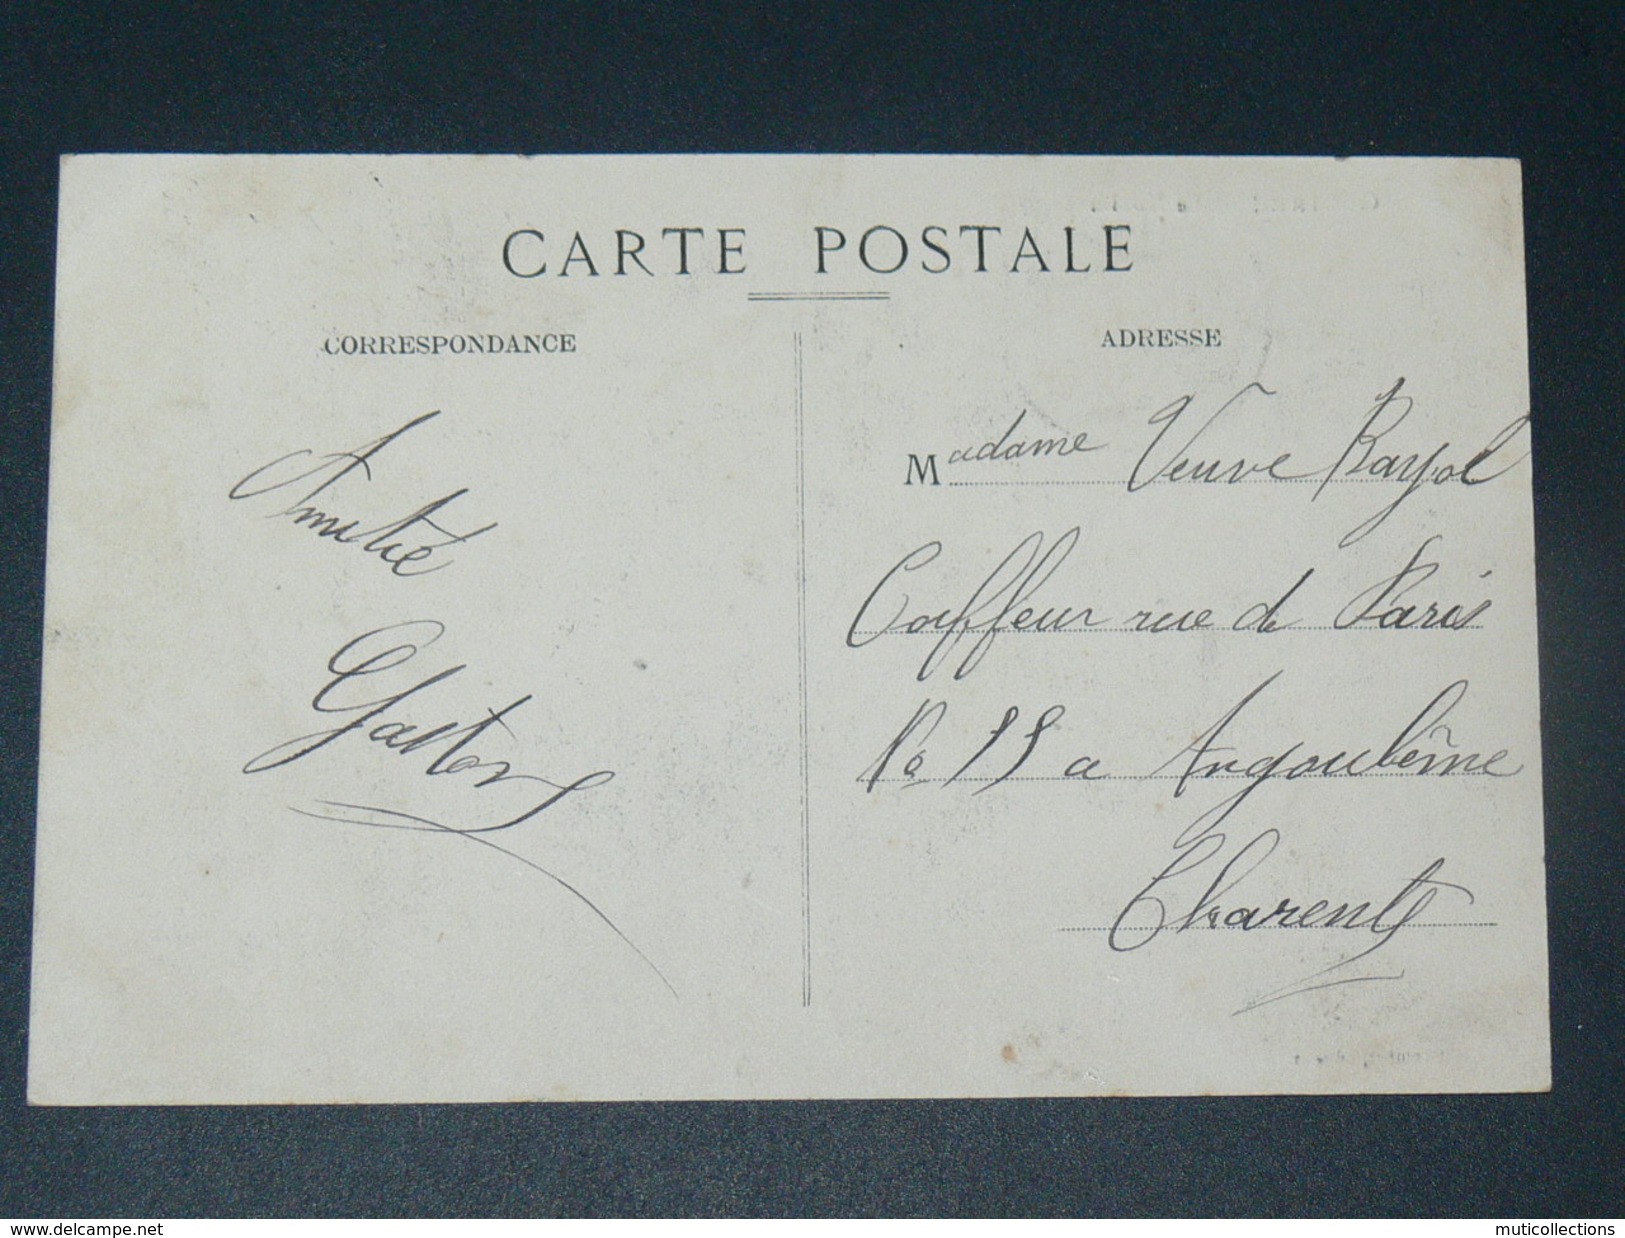 CARTE POSTALE
CORRESPONDANCE
Amitié
Gaston
ADRESSE
Madame Veuve Rayol
Coiffeur rue de Paris
No 55 a Angoulême
Charente
www.delcampe.net
muticollections